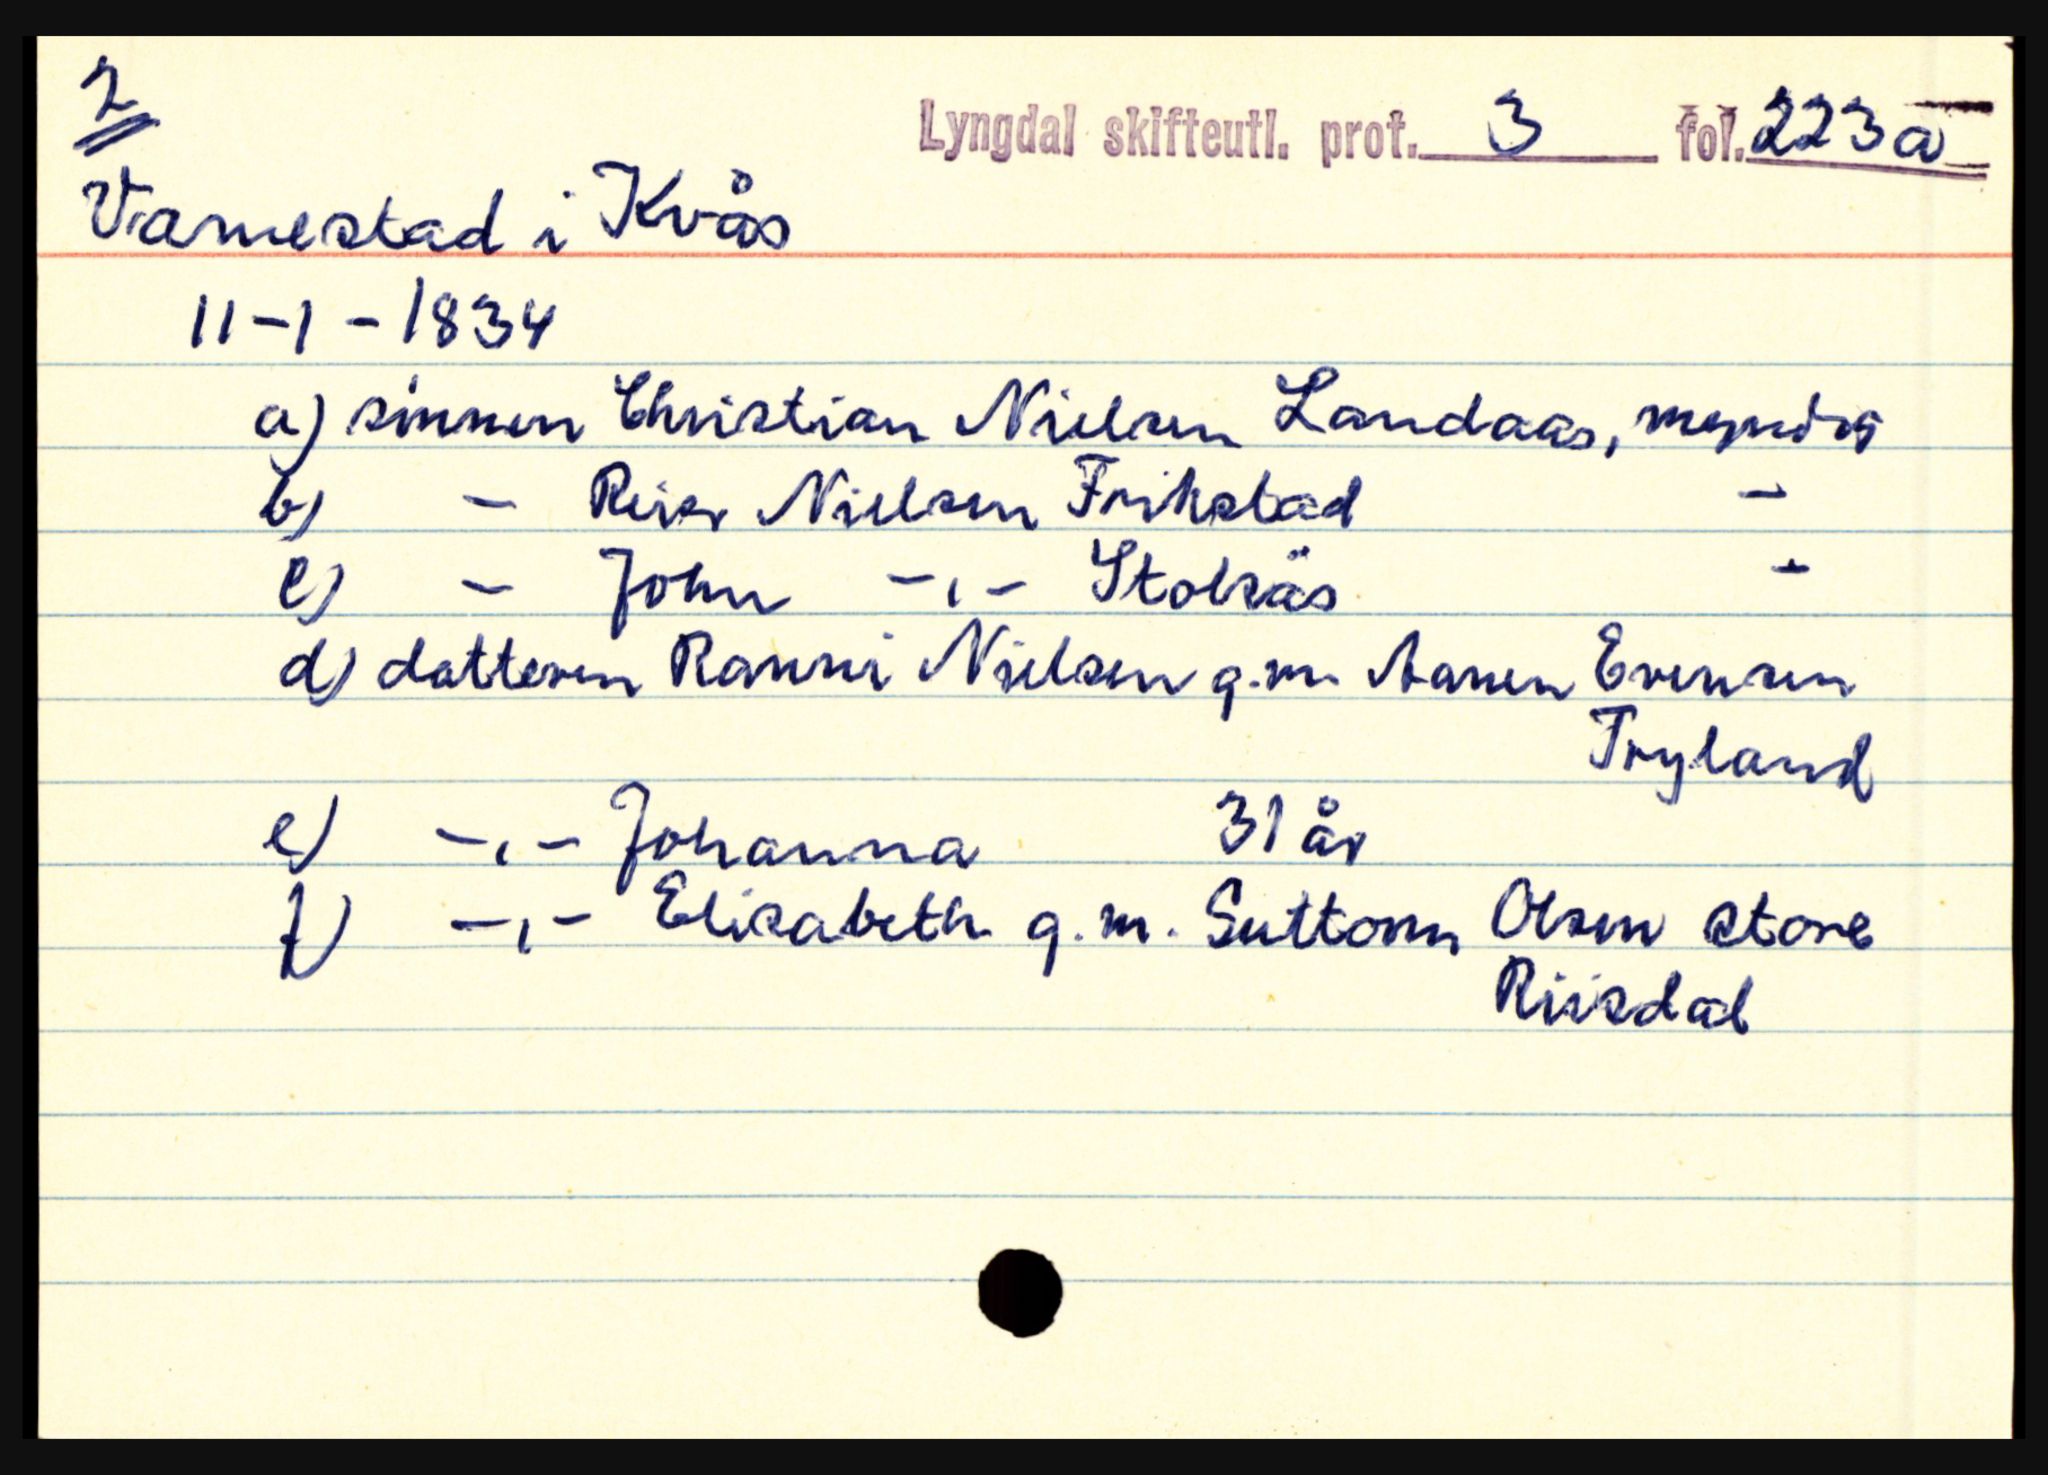 2
Lyngdal skifteutl. prot. 3 fol. 223a
Vamestad i Kvås
11-1-1834
a) sønnen Christian Nielsen Landaas, myndig
b) - Reier Nielsen Frikstad -
c) - John -,- Stolsås -
d) datteren Ranni Nielsen g.m. Aanen Evensen
Tryland
e) -,- Johanna 31 år
f) -,- Elisabeth g.m. Guttorm Olsen store
Riisdal